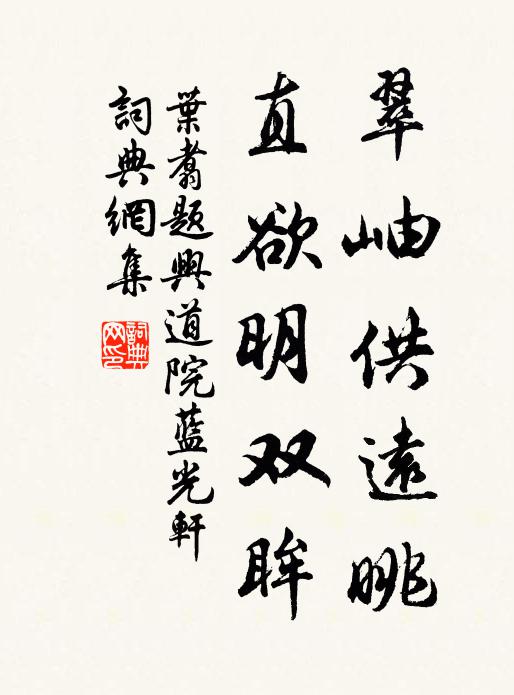 翠岫供遠眺
直欲明双眸
葉翥题興道院藍光軒
詞典網集
詞典网印